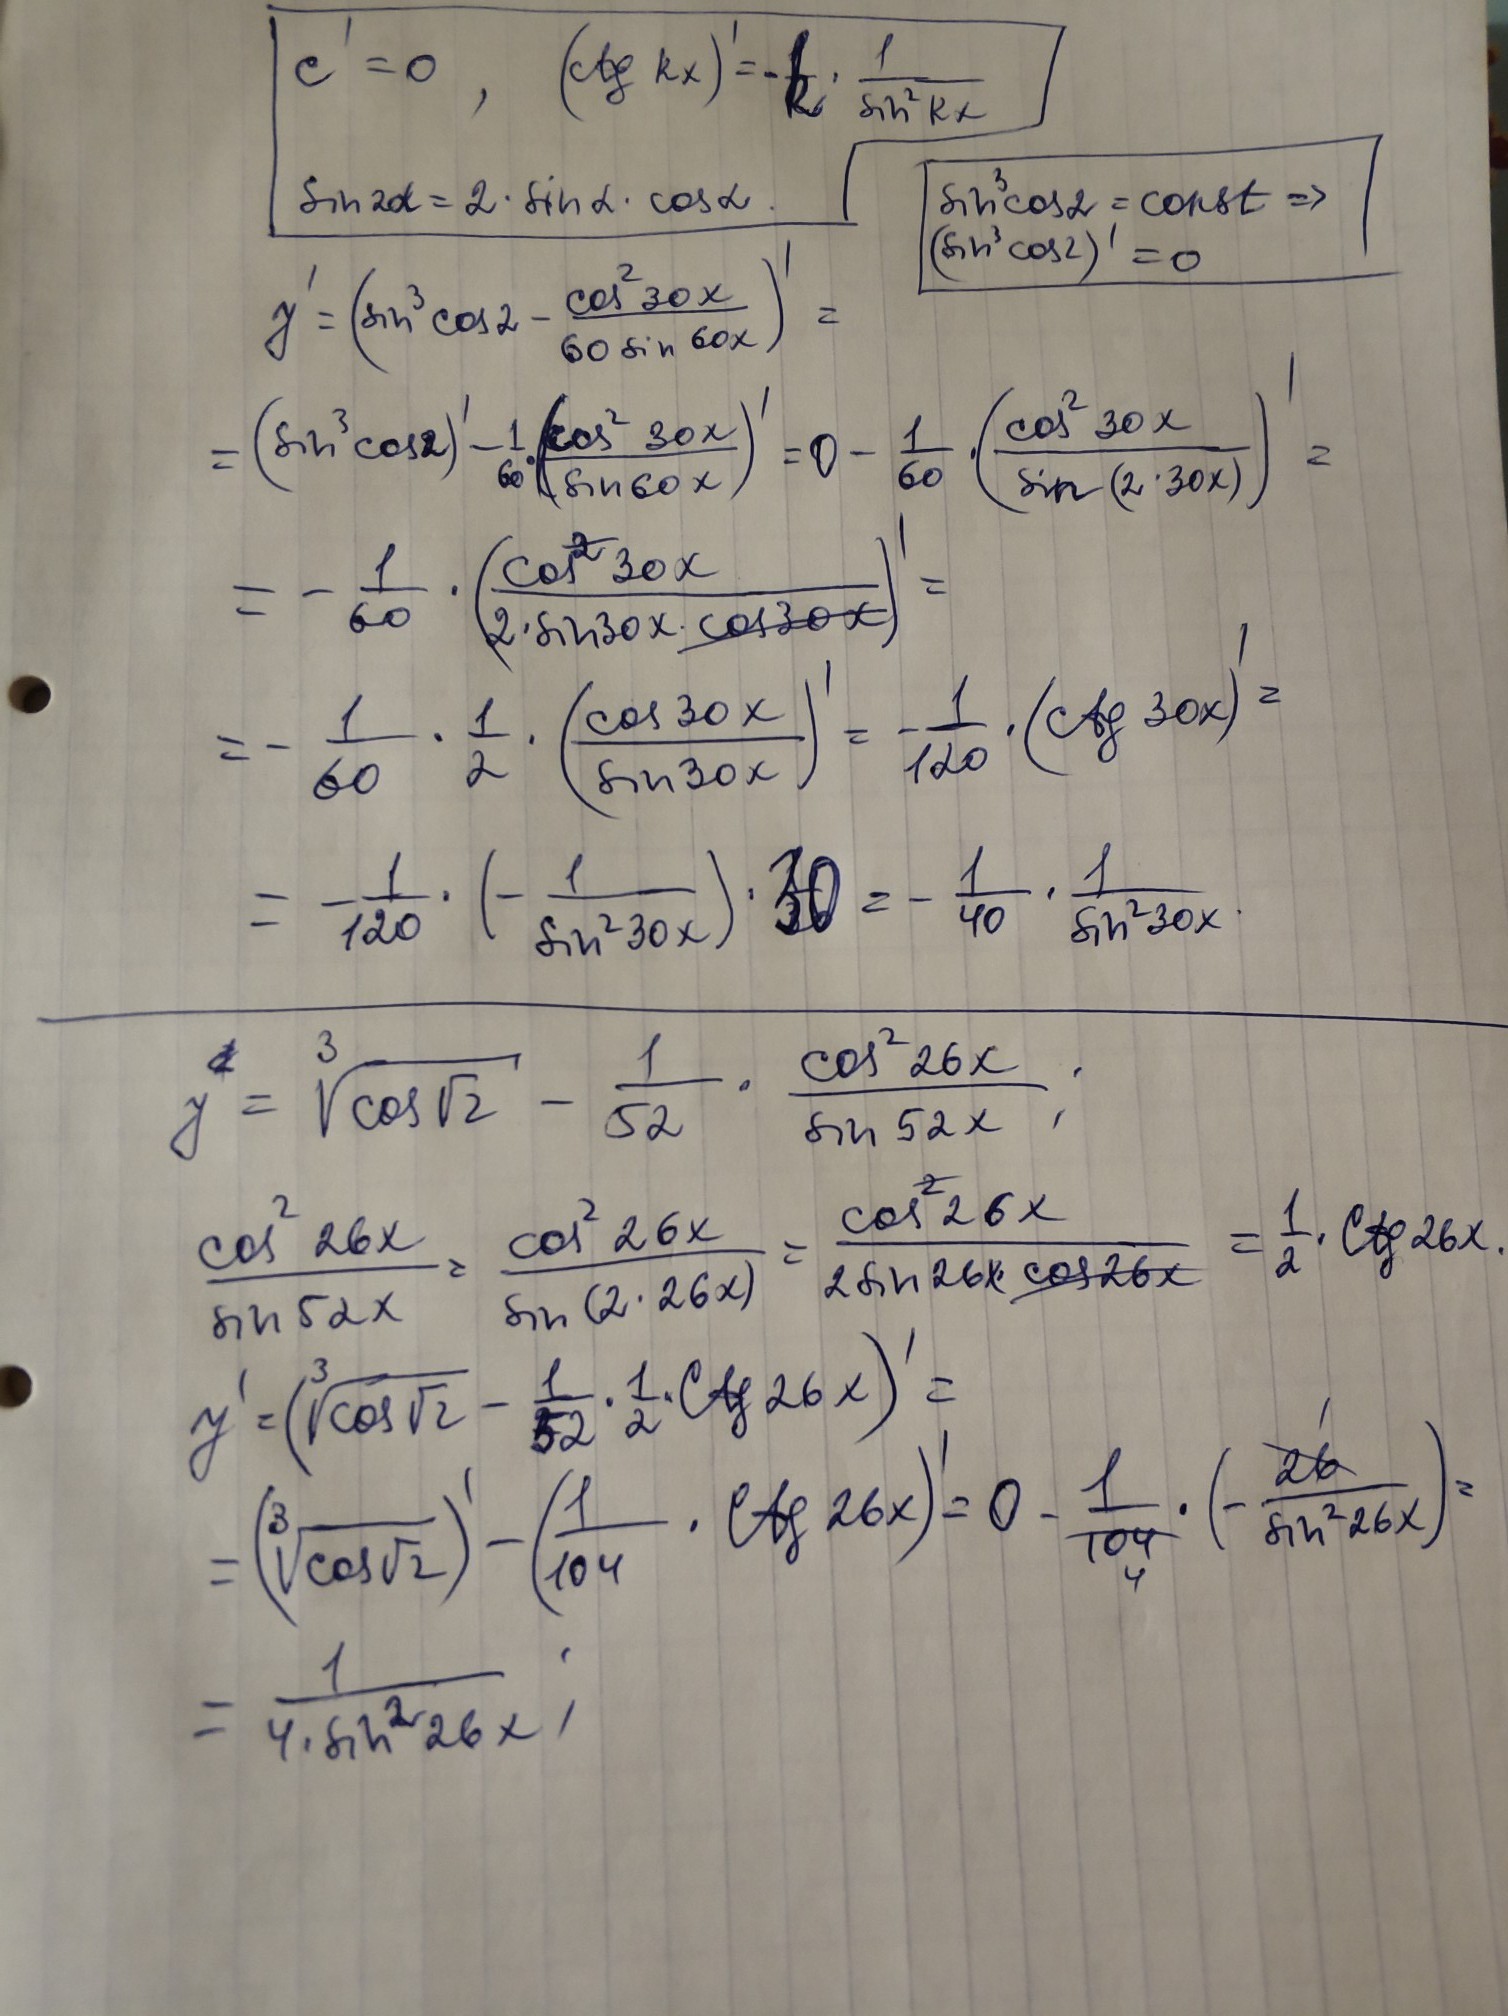 c' = 0 , (ctg kx)' = -k · 1/sin²kx
sin2α = 2 · sinα · cosα.
sin³cos2 = const ⇒
(sin³cos2)' = 0
y' = (sin³cos2 - cos²30x/60 sin 60x)' =
= (sin³cos2)' - 1/60 · (cos²30x/sin60x)' = 0 - 1/60 · (cos²30x/sin(2·30x))' =
= - 1/60 · (cos²30x/2·sin30x·cos30x)' =
= - 1/60 · 1/2 · (cos30x/sin30x)' = - 1/120 · (ctg 30x)' =
= - 1/120 · (- 1/sin²30x) · 30 = - 1/40 · 1/sin²30x.
y = ³√cos√2 - 1/52 · cos²26x/sin 52x ;
cos²26x/sin52x = cos²26x/sin(2·26x) = cos²26x/2sin26x·cos26x = 1/2 · ctg 26x.
y' = (³√cos√2 - 1/52 · 1/2 · ctg 26x)' =
= (³√cos√2)' - (1/104 · ctg 26x)' = 0 - 1/104 4 · (- 26 1/sin²26x) =
= 1/4·sin²26x ;